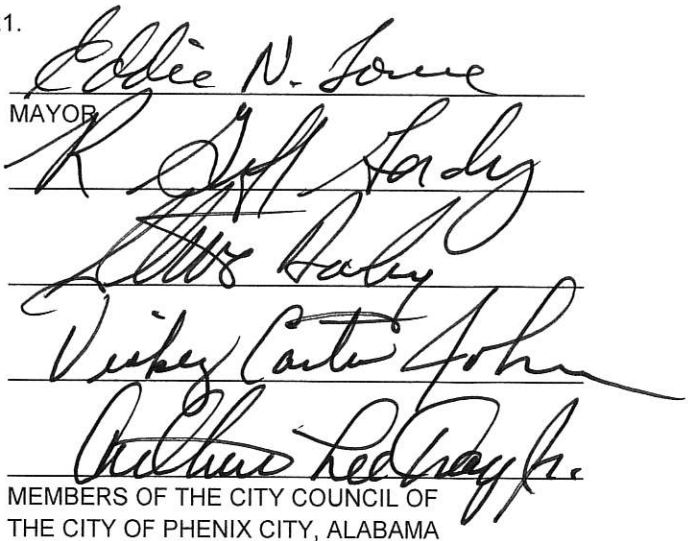 1.
Eddie N. Lowe
MAYOR
R Griff Gordy
Steve Bailey
Vickey Carter Johnson
Arthur Lee Day Jr.
MEMBERS OF THE CITY COUNCIL OF
THE CITY OF PHENIX CITY, ALABAMA